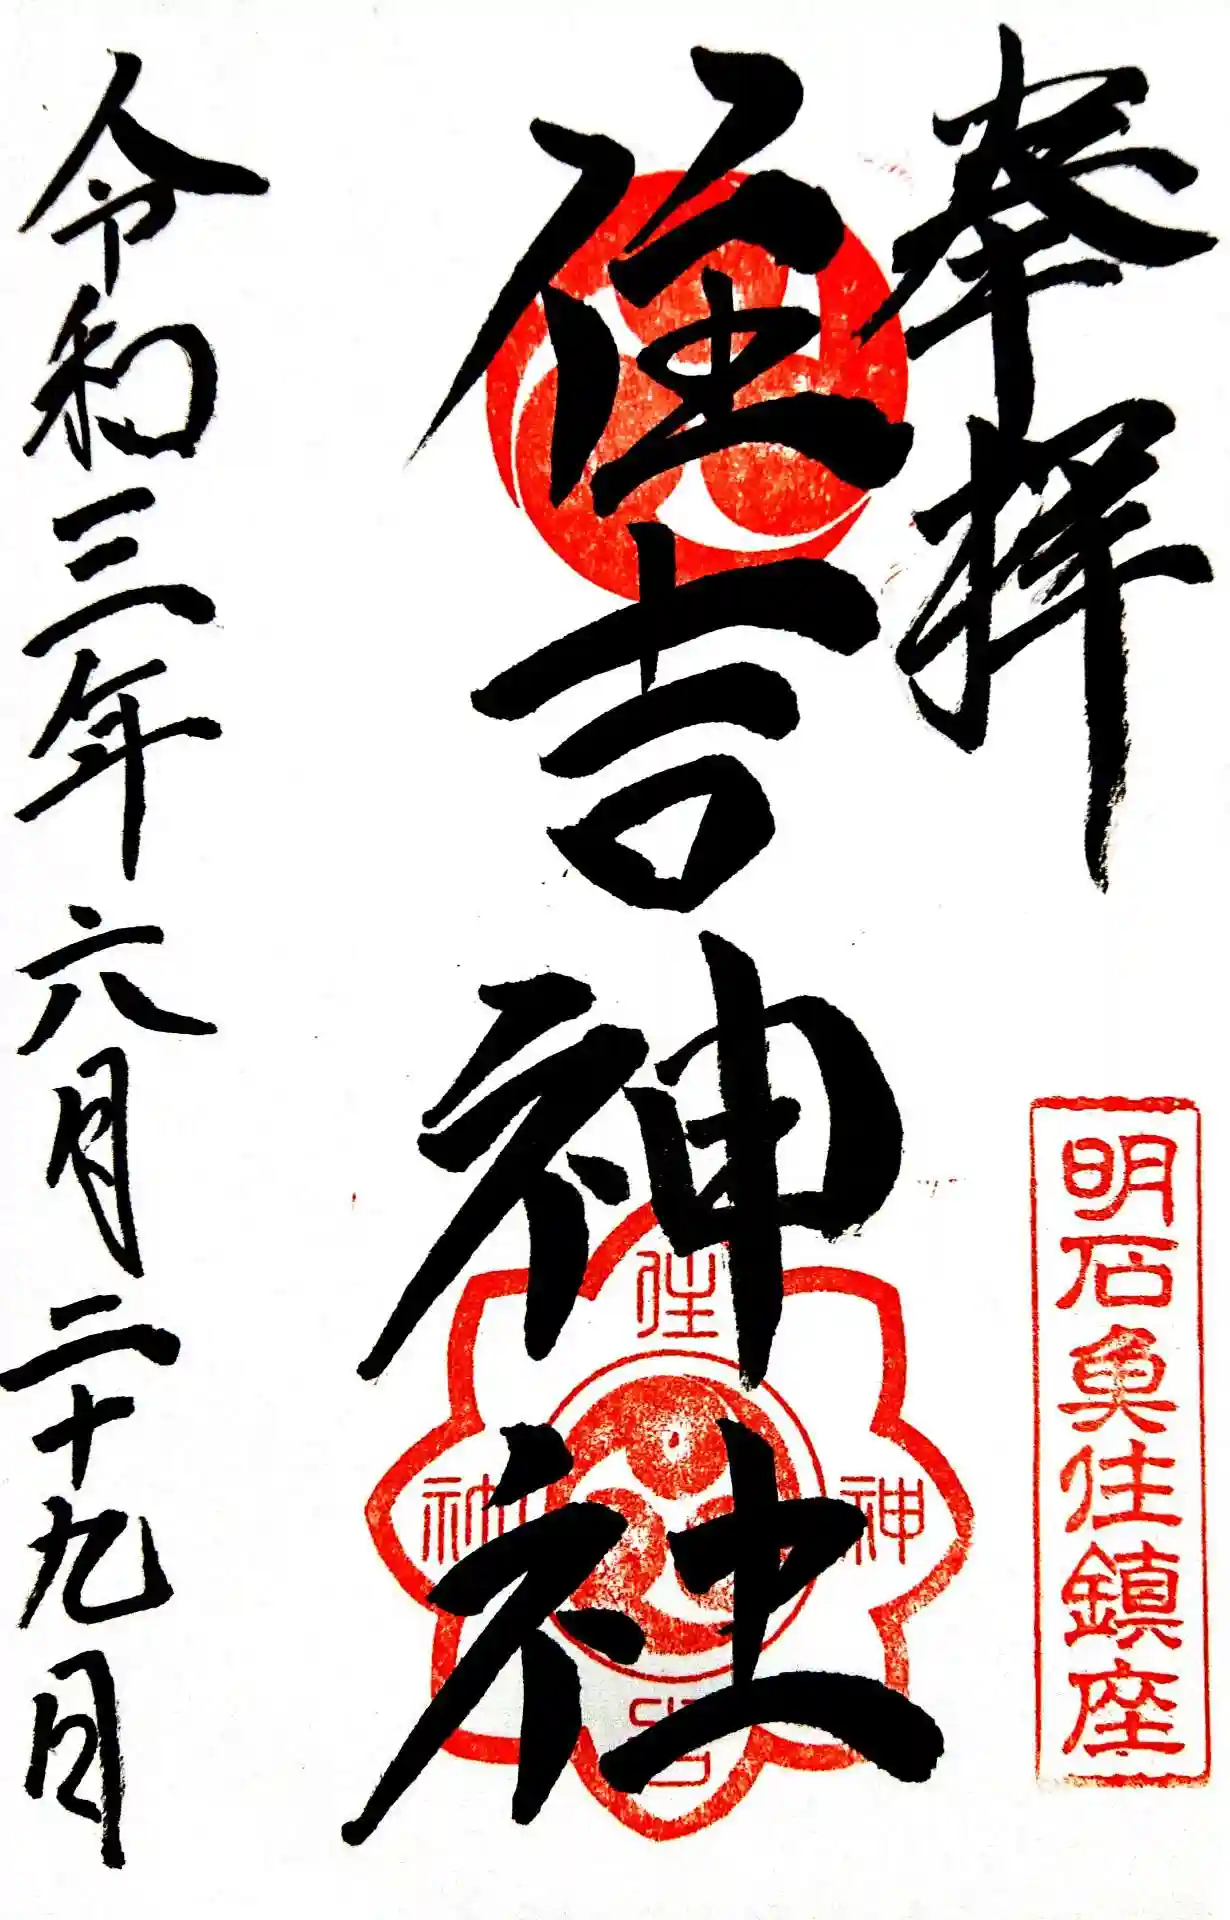 奉拝
明石魚住鎮座
住吉神社
住吉神社
令和三年六月二十九日